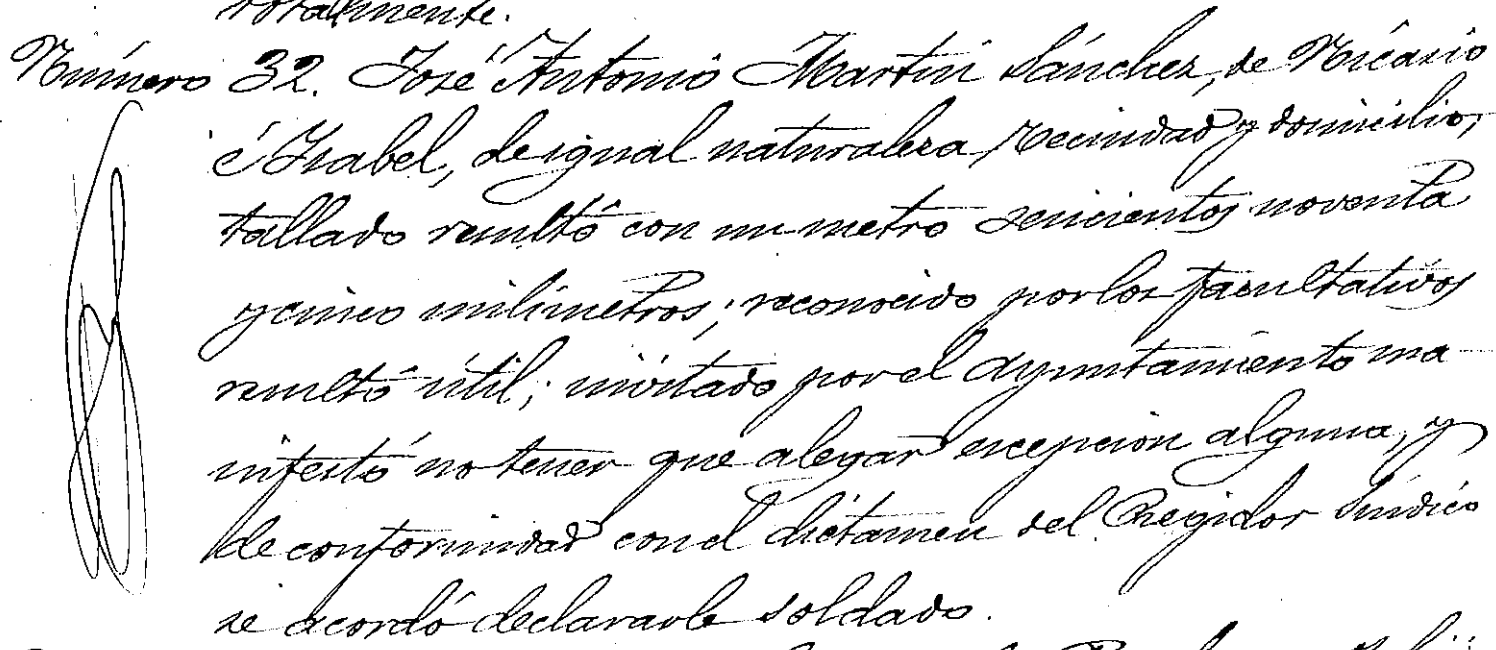 totalmente.
Número 32. José Antonio Martín Sánchez, de Nicasio
é Isabel, de igual naturaleza, vecindad y domicilio,
tallado resultó con un metro seiscientos noventa
y cinco milímetros; reconocido por los facultativos
resultó útil; invitado por el Ayuntamiento ma-
nifestó no tener que alegar excepción alguna, y
de conformidad con el dictamen del Regidor Síndico
se acordó declararle soldado.